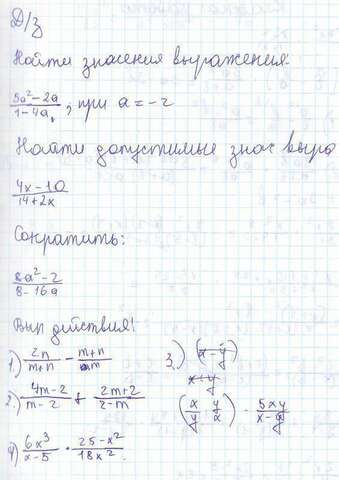 Д/З
Найти значения выражения:
(3a² - 2a)/(1 - 4a), при a = -2
Найти допустимые знач выра
(4x - 10)/(14 + 2x)
Сократить:
(8a² - 2)/(8 - 16a)
Вып действия!
1.) 2n/(m+n) - (m+n)/m
2.) (4m - 2)/(m - 2) + (2m+2)/(2-m)
3.) (x - y)
x + y
(x/y - y/x) · 5xy/(x - y)
4) 6x³/(x - 5) · (25 - x²)/(18x²)